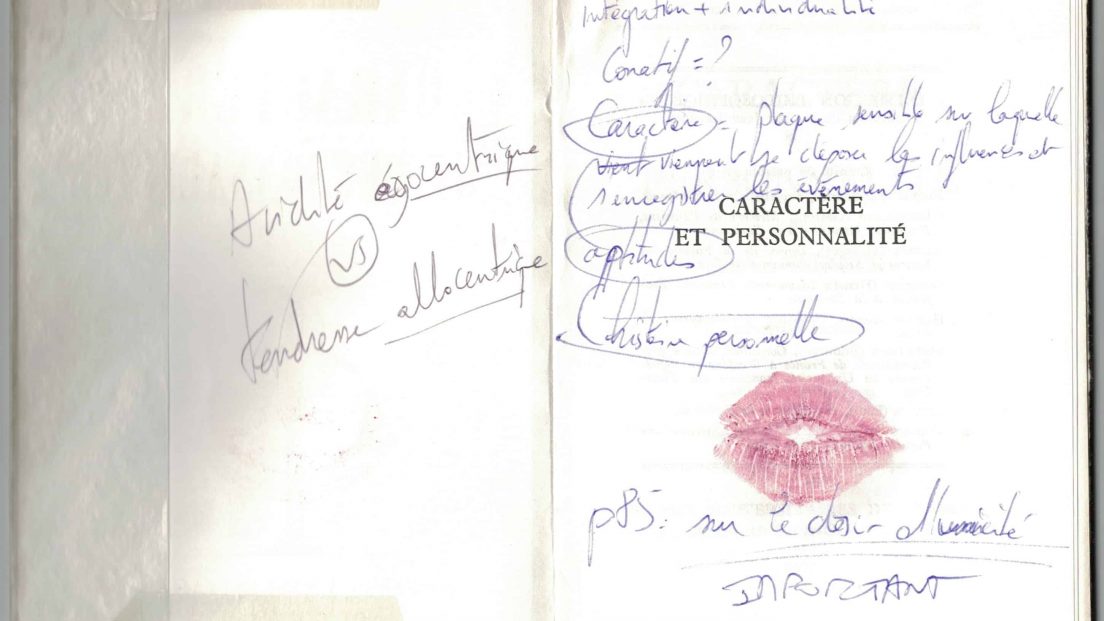 Avidité égocentrique
VS
tendresse allocentrique
Intégration + individualité
Conatif = ?
Caractère = plaque sensible sur laquelle
vient viennent se déposer les influences et
s'enregistrer les évènements
CARACTÈRE
ET PERSONNALITÉ
aptitudes
histoire personnelle
p85 : sur le désir d'unicité
IMPORTANT